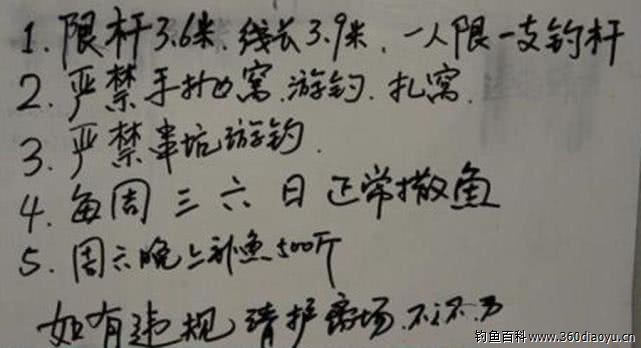 1. 限杆3.6米.线长3.9米.一人限一支钓杆
2. 严禁手抛窝.游钓.扎窝.
3. 严禁串坑游钓.
4. 每周三六日正常撒鱼
5. 周六晚上补鱼500斤
如有违规请护离场.不
钓鱼百科www.360diaoyu.cn